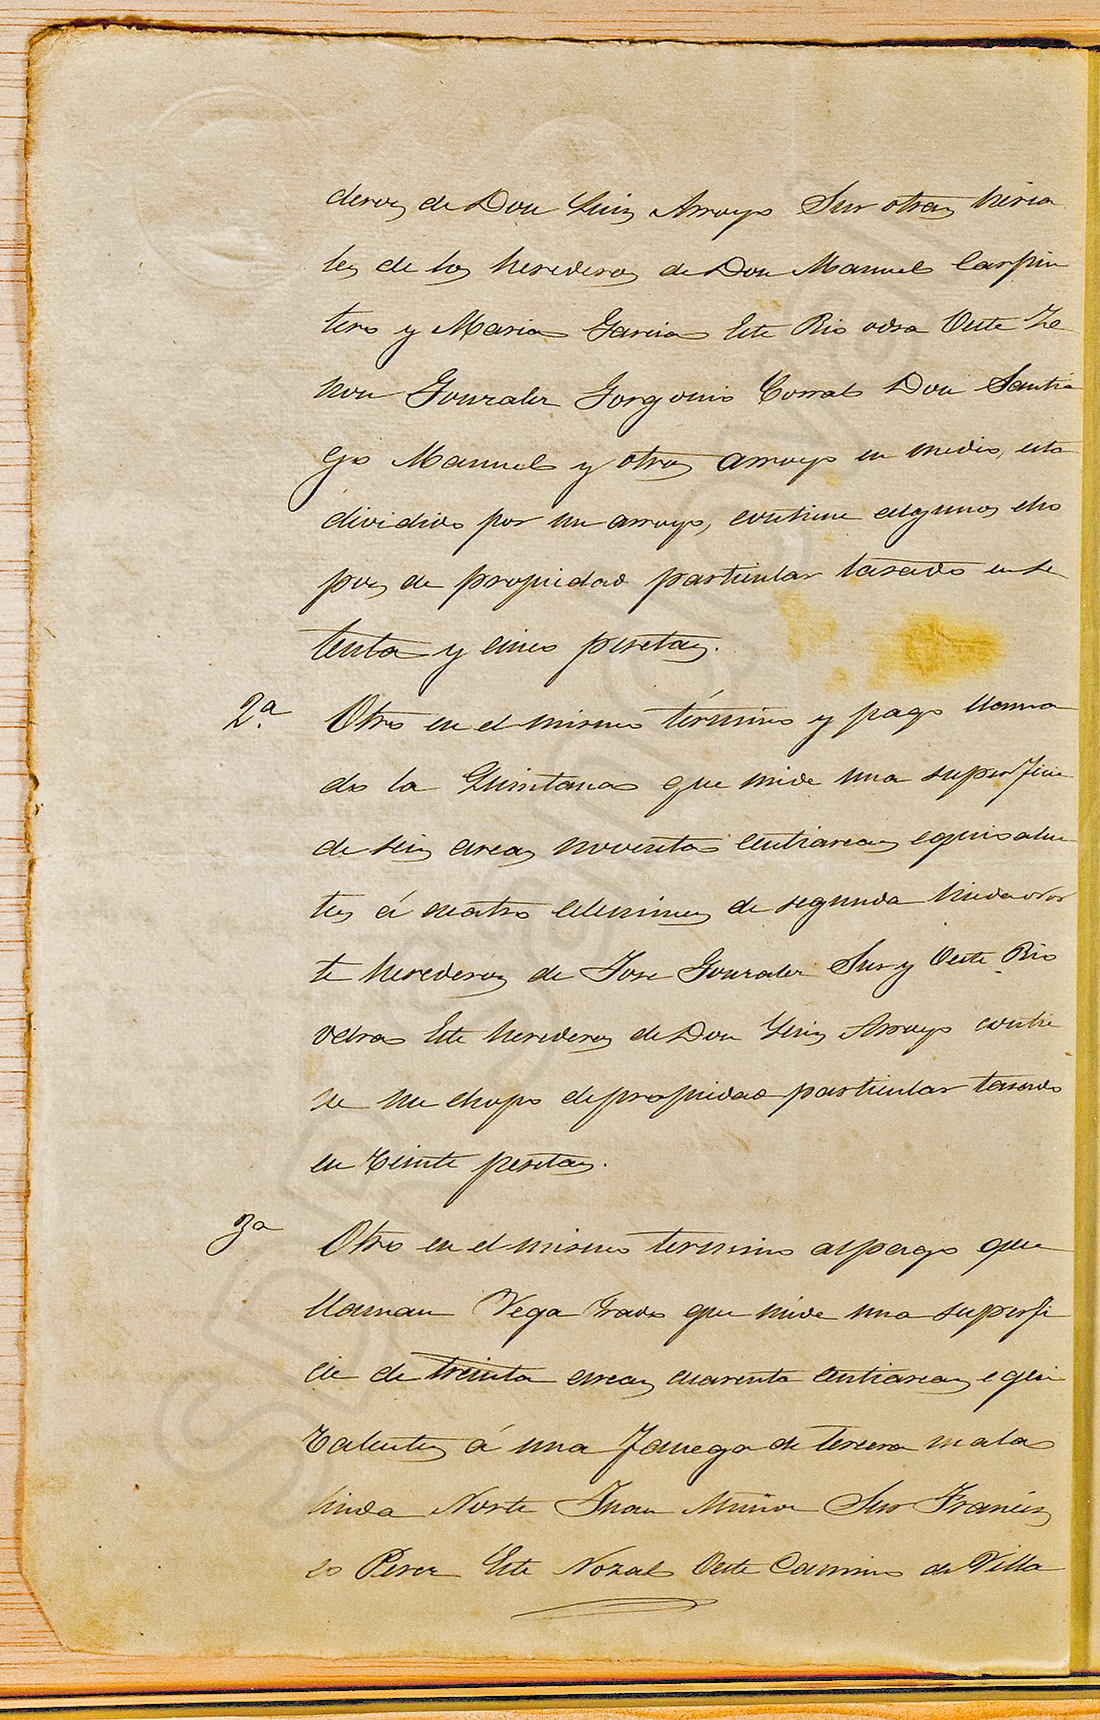 deros de Don Luis Arroyo Sur otras heria
les de los herederos de Don Manuel Carpin
tero y Maria Garcia Este Rio odra Oeste Ze
non Gonzalez Gorgonio Corral Don Santia
go Manuel y otros arroyo en medio, esta
dividido por un arroyo, contiene algunos cho
pos de propiedad particular tasado en se
tenta y cinco pesetas.
2.ª Otro en el mismo término y pago llama
do la Quintana que mide una superficie
de seis areas noventa centiareas equivalen
tes á cuatro celemines de segunda linda Nor
te herederos de Jose Gonzalez Sur y Oeste Rio
odra Este herederos de Don Luis Arroyo contie
ne un chopo de propiedad particular tasado
en veinte pesetas.
3ª Otro en el mismo termino al pago que
llaman Vega Prado que mide una superfi
cie de treinta areas cuarenta centiareas equi
valentes á una fanega de tercera mala
linda Norte Juan Muñoz Sur Francis
co Perez Este Nozal Oeste Camino de Villa